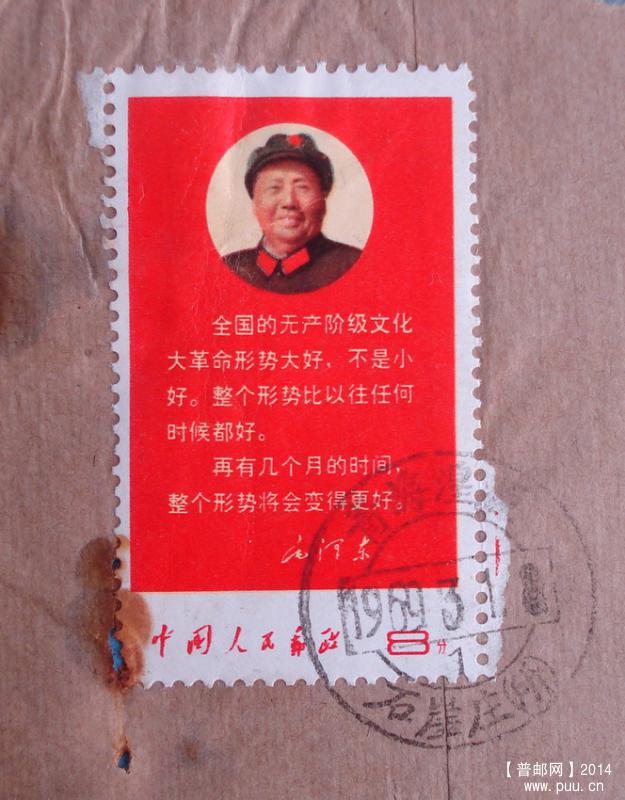 全国的无产阶级文化
大革命形势大好，不是小
好。整个形势比以往任何
时候都好。
再有几个月的时间，
整个形势将会变得更好。
毛泽东
中国人民邮政
8分
青海湟
1969.3.1
1
石崖庄(所)
【普邮网】2014
www.puu.cn